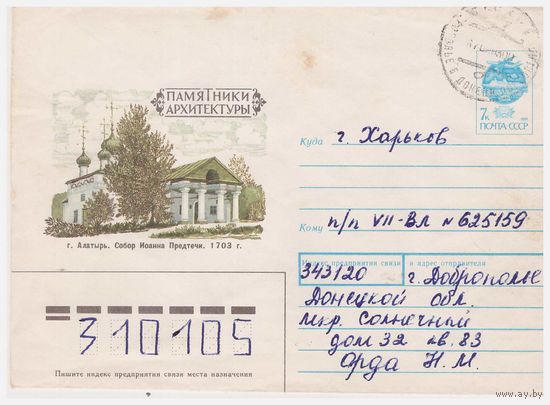 ПАМЯТНИКИ
АРХИТЕКТУРЫ
г. Алатырь. Собор Иоанна Предтечи. 1703 г.
7к
ПОЧТА СССР
Куда г. Харьков
Кому п/п VII-ВЛ № 625159
Индекс предприятия связи и адрес отправителя
343120 г. Доброполье
Донецкой обл.
мкр. Солнечный
дом 32 кв. 83
Орда Н. М.
310105
Пишите индекс предприятия связи места назначения
www.ay.by